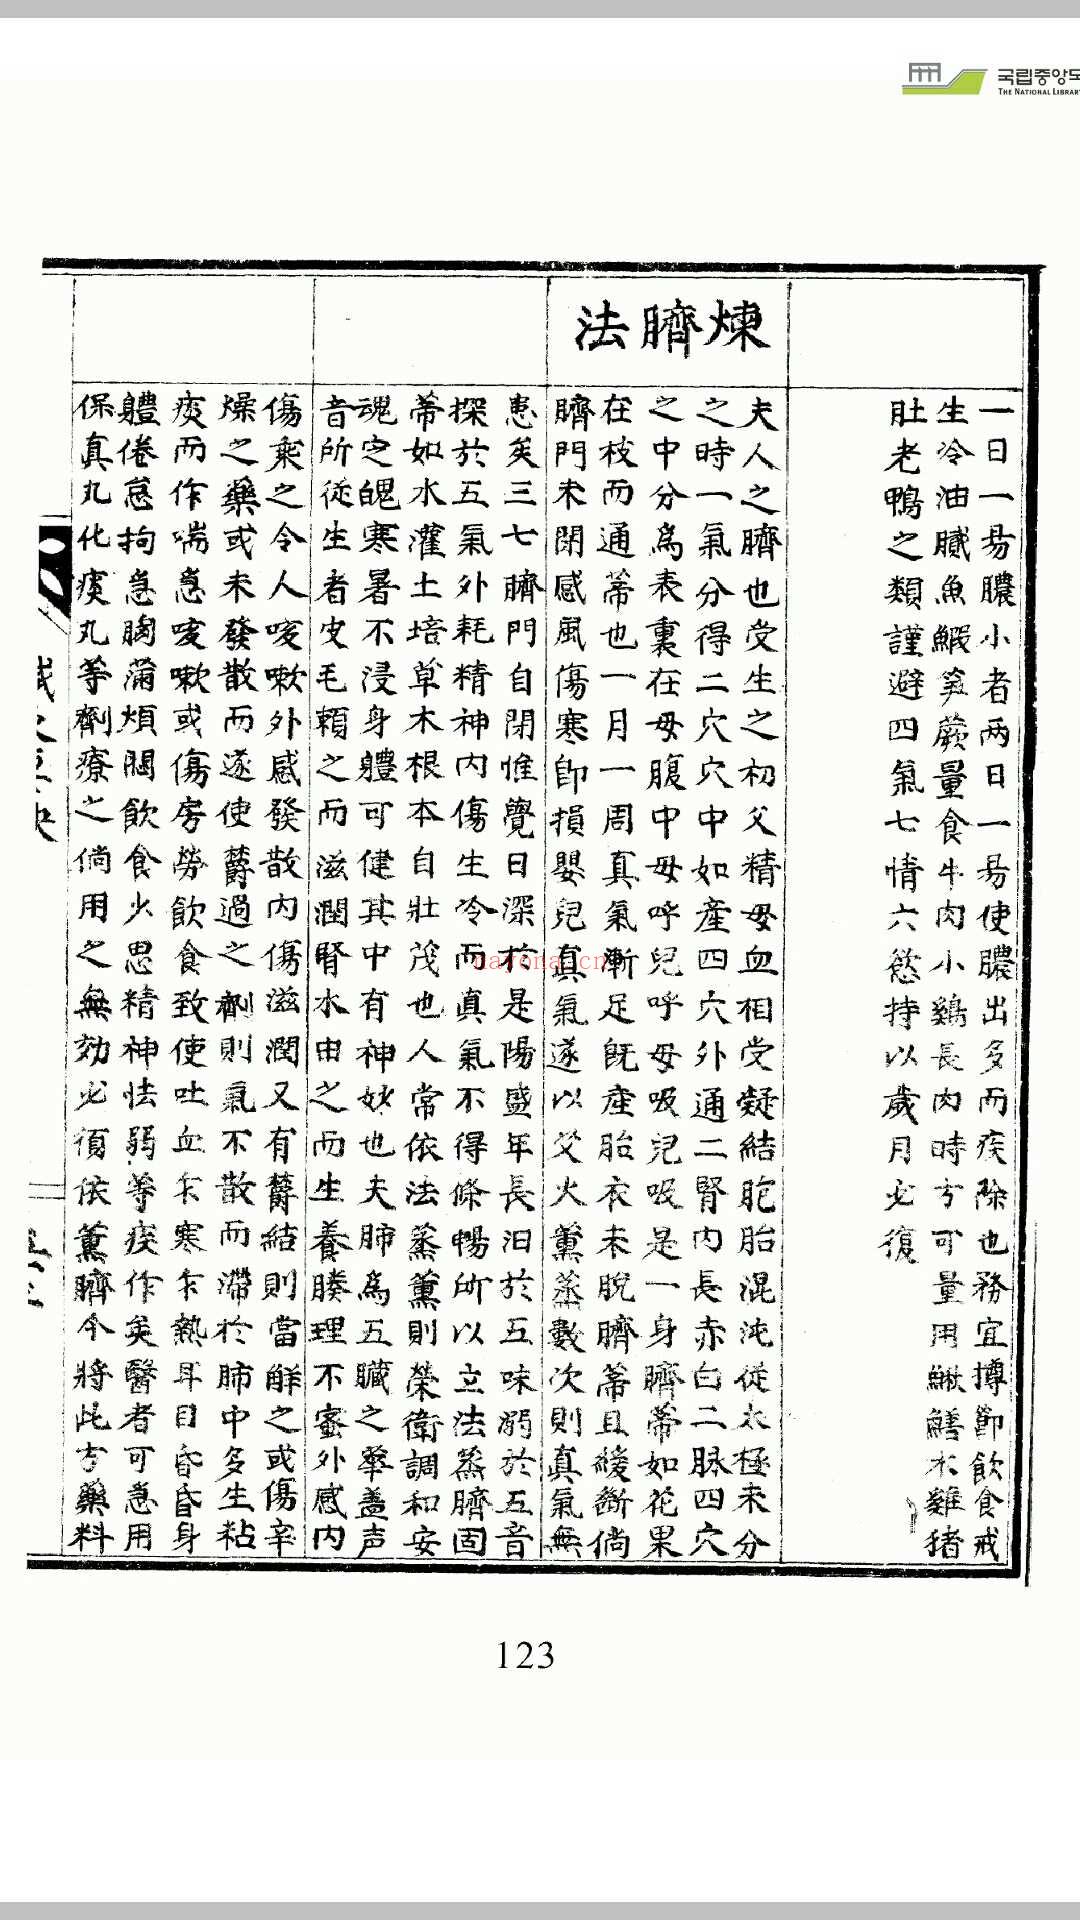 국립중앙도
THE NATIONAL LIBRARY
煉臍法
一日一易膿小者两日一易使膿出多而疾除也務宜撙節飲食戒
生冷油膩魚鰕笋蕨量食牛肉小鷄長肉時方可量用鰍鱔木雞猪
肚老鴨之類謹避四氣七情六慾持以歲月必復
夫人之臍也受生之初父精母血相受凝結胞胎混沌從太極未分
之時一氣分得二穴穴中如產四穴外通二腎内長赤白二脉四穴
之中分爲表裏在母腹中母呼兒呼母吸兒吸是一身臍蒂如花果
在枝而通蒂也一月一周真氣漸足既產胎衣未脫臍蒂且緩斷倘
臍門未閉感風傷寒即損嬰兒真氣遂以父火薰蒸數次則真氣無
患矣三七臍門自閉惟覺日深於是陽盛年長汨於五味溺於五音
探於五氣外耗精神内傷生冷而真氣不得條暢所以立法蒸臍固
蒂如水灌土培草木根本自壯茂也人常依法蒸薰則榮衛調和安
魂定魄寒暑不浸身體可健其中有神妙也夫肺爲五臟之華盖声
音所従生者皮毛頼之而滋潤腎水由之而生養腠理不蜜外感内
傷乘之令人咳嗽外感發散内傷滋潤又有欝結則當解之或傷辛
燥之藥或未發散而遂使欝過之劑則氣不散而滯於肺中多生粘
痰而作喘急咳嗽或傷房勞飲食致使吐血乍寒乍熱耳目昏昏身
軆倦怠拘急胸滿煩悶飲食少思精神怯弱等痰作矣醫者可急用
保真丸化痰丸等劑療之倘用之無効必須依薰臍今將此方藥料
nayona.cn
123